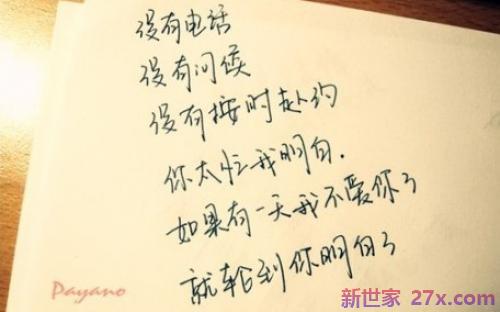 没有电话
没有问候
没有按时赴约
你太忙我明白.
如果有一天我不爱你了
就轮到你明白了
Payano
新世家 27x.com